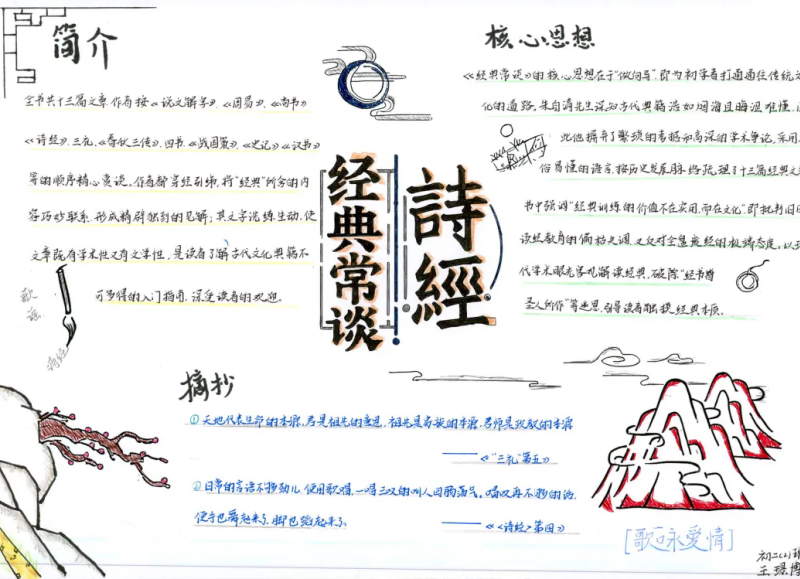 简介
全书共十三篇文章,作者按《说文解字》、《周易》、《尚书》
《诗经》、三礼、《春秋三传》、四书、《战国策》、《史记》《汉书》
等的顺序精心赏说。作者融穿经引纬,将“经典”所含的内
容巧妙联系,形成精辟独到的见解;其文字洗练生动,使
文章既有学术性又有文学性,是读者了解古代文化典籍不
可多得的入门指南,深受读者的欢迎。
歌谣
诗经
经典常谈
詩經
核心思想
《经典常谈》的核心思想在于“做向导”,即为初学者打通通往传统文
化的道路。朱自清先生深知古代典籍浩如烟海且晦涩难懂,
此他摒弃了繁琐的考据和高深的学术争论,采用
俗易懂的语言,按历史发展脉络梳理了十三篇经典文
书中强调“经典训练的价值不在实用,而在文化”,即批判旧
读经教育的僵枯老调,又反对全盘废经的极端态度,以
代学术眼光客观解读经典,破除“经书皆
圣人所作”等迷思,引导读者触摸经典本质。
摘抄
①天地代表生命的本源,君是祖先的意思,祖先是家族的本源,君师是政教的本源
——《“三礼”第五》
②日常的言语不够劲儿,便用歌唱,一唱三叹的叫人回肠荡气。唱叹再不够的话,
便手也舞起来了,脚也蹈起来了。
——《《诗经》第四》
[歌咏爱情]
初二(2)班
王璟博